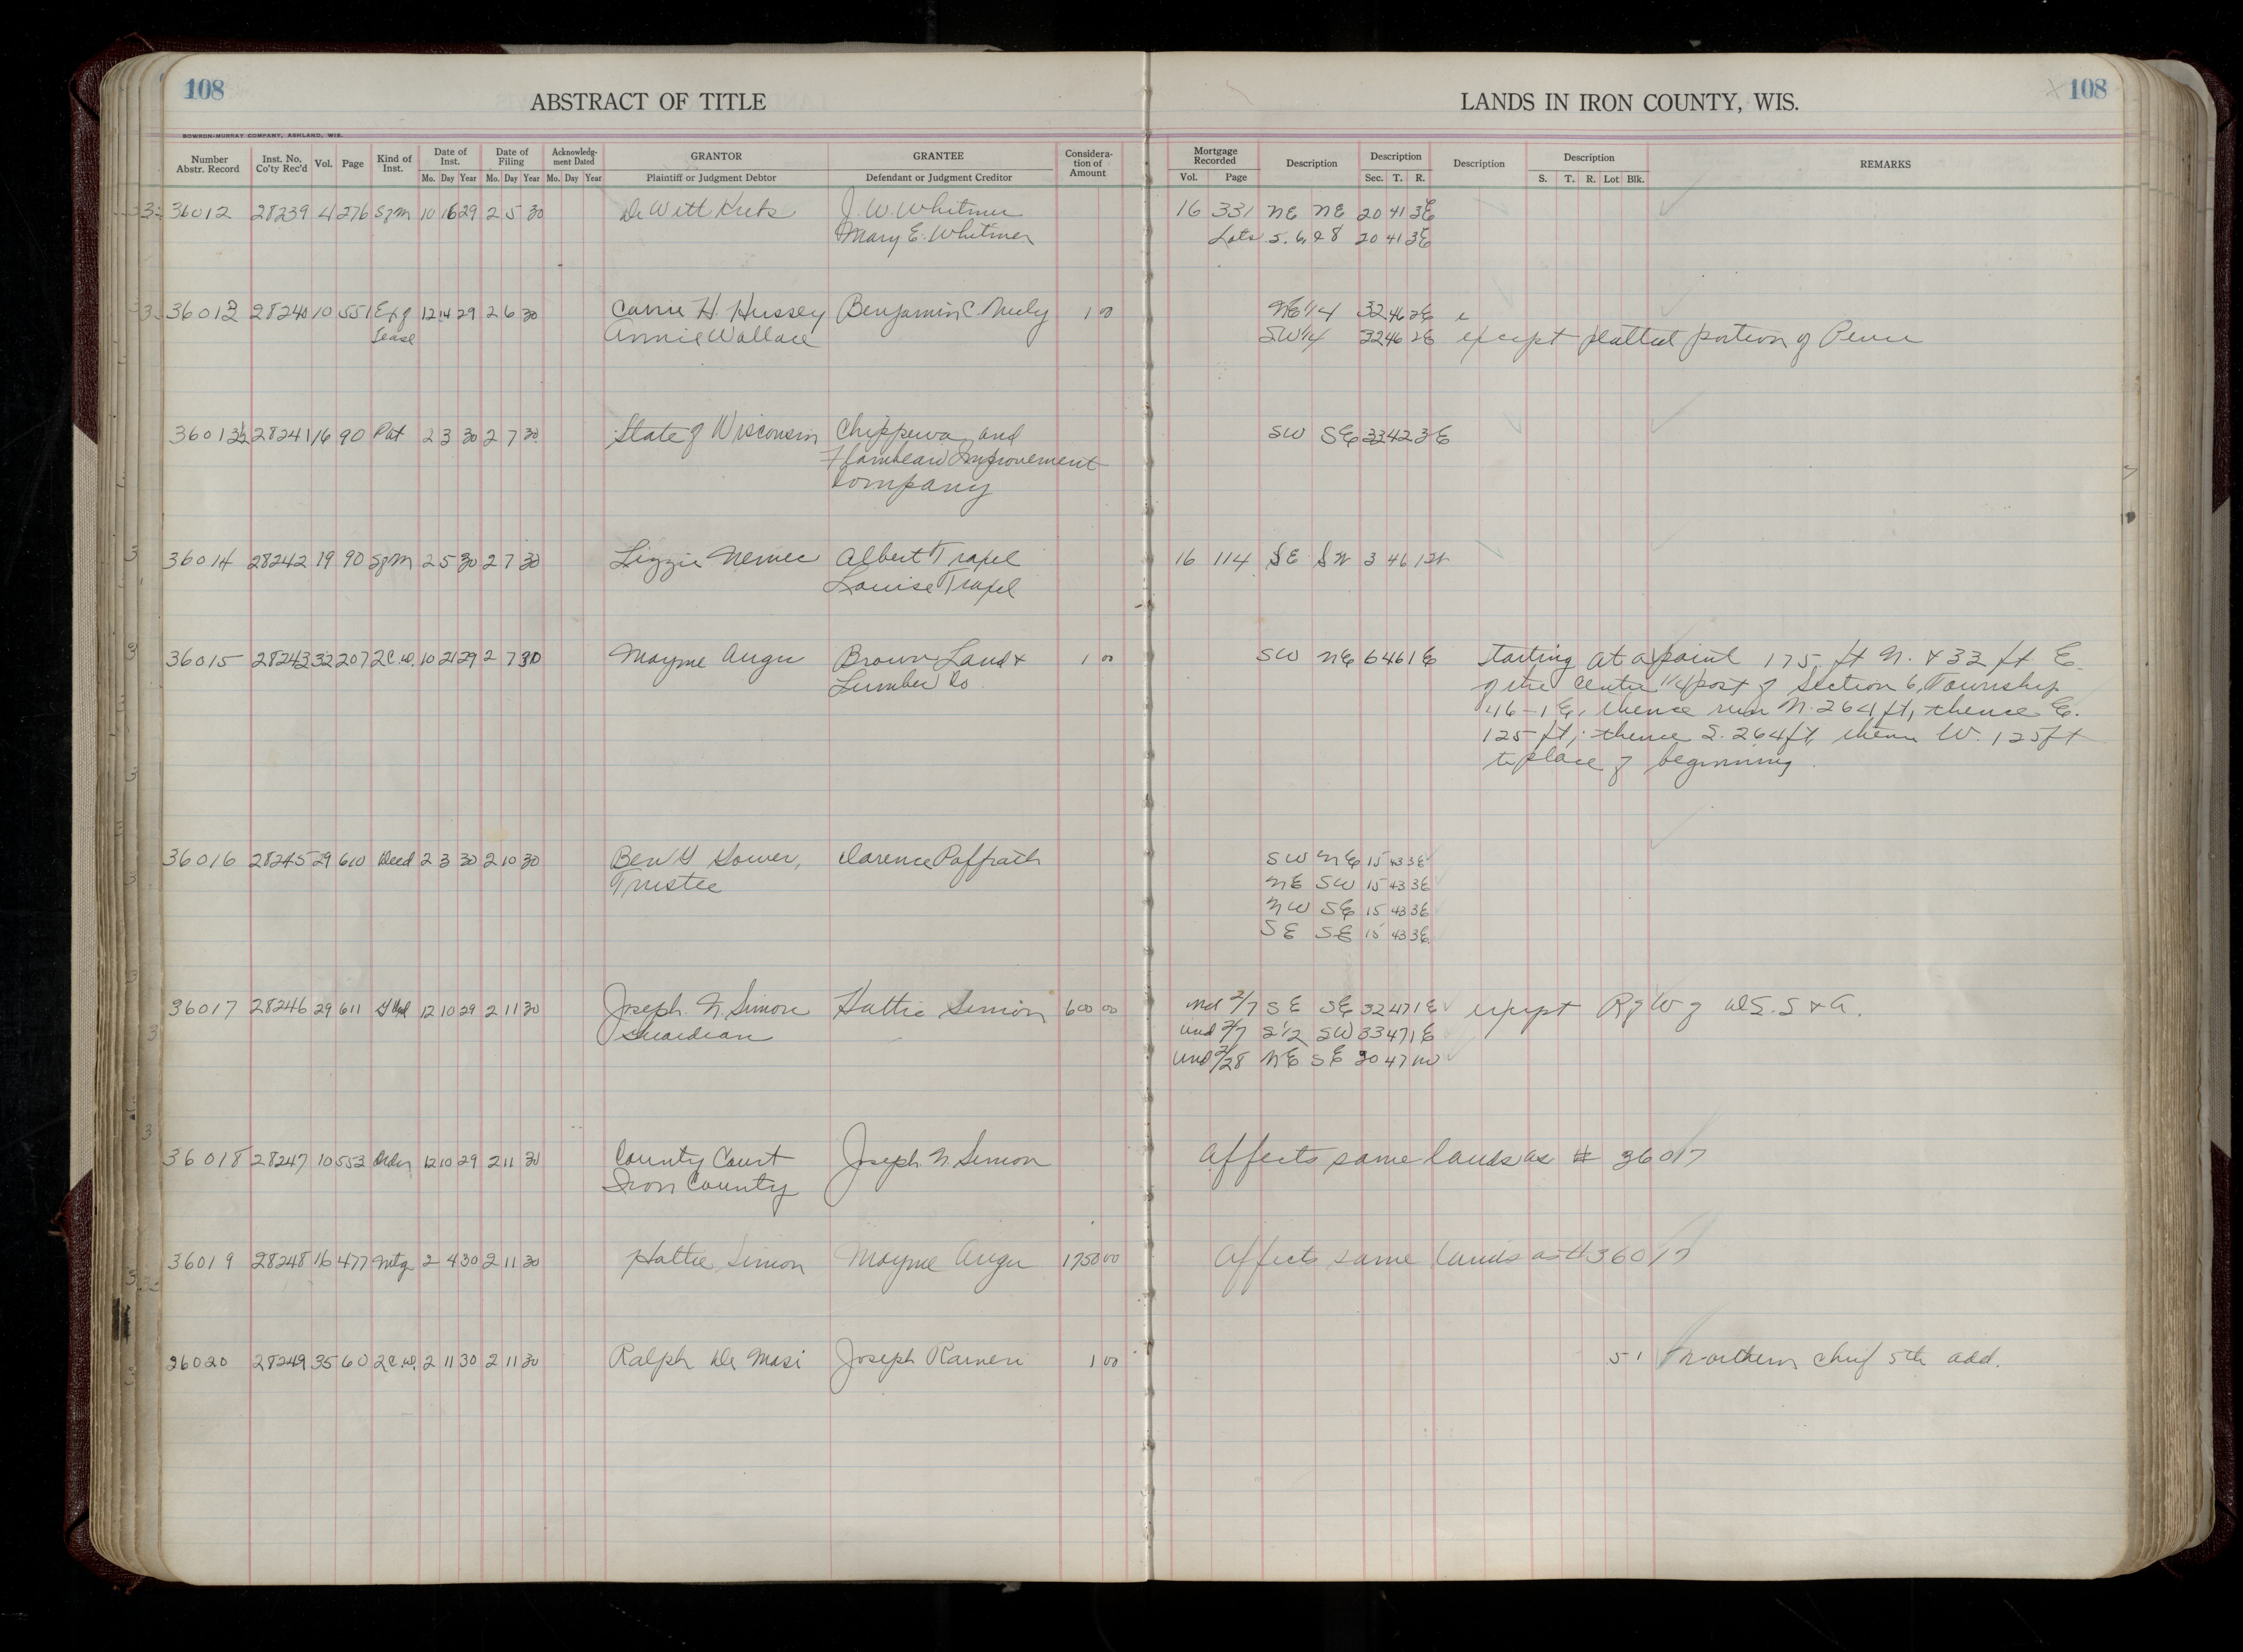 108
ABSTRACT OF TITLE
LANDS IN IRON COUNTY, WIS.
108
BOWRON-MURRAY COMPANY, ASHLAND, WIS.
Number Abstr. Record Inst. No. Co'ty Rec'd Vol. Page Kind of Inst. Date of Inst. Date of Filing Acknowledg-ment Dated GRANTOR GRANTEE Considera-tion of Amount Mortgage Recorded Description Description Description Description REMARKS
Mo. Day Year Mo. Day Year Mo. Day Year Plaintiff or Judgment Debtor Defendant or Judgment Creditor Vol. Page Sec. T. R. S. T. R. Lot Blk.
36012 28239 4 276 Sgm 10 16 29 2 5 30 De Witt J. W. Whitmer 16 331 NE NE 20 41 3E
Mary E. Whitmer Lots 5, 6, & 8 20 41 3E
36013 28240 10 551 Exg 12 14 29 2 6 30 Carrie H. Hussey Benjamin C. Neely 1 00 NE 1/4 32 46 2E
Lease Annie Wallace SW 1/4 32 46 2E except platted portion of Pence
36013½ 28241 16 90 Pat 2 3 30 2 7 30 State of Wisconsin Chippewa and SW SE 33 42 3E
Flambeau Improvement
Company
36014 28242 19 90 Sgm 2 5 30 2 7 30 Lizzie Nemec Albert Trapel 16 114 SE SW 3 46 1W
Louise Trapel
36015 28243 32 207 2C.W. 10 21 29 2 7 30 Mayme Angu Brown Land & 1 00 SW NE 6 46 1E Starting at a point 175 ft N. & 33 ft E.
Lumber Co. of the center 1/4 post of Section 6, Township
46-1E, thence run N. 264 ft, thence E.
125 ft; thence S. 264 ft, thence W. 125 ft
to place of beginning.
36016 28245 29 610 Deed 2 3 30 2 10 30 Ben G Sower, Clarence Paffrath SW NE 15 43 3E
Trustee NE SW 15 43 3E
NW SE 15 43 3E
SE SE 15 43 3E
36017 28246 29 611 12 10 29 2 11 30 Joseph N. Simon Hattie Simon 600 00 und 2/7 SE SE 32 47 1E except R of W of D.S.S & A.
Guardian und 2/7 S 1/2 SW 33 47 1E
und 2/28 NE SE 30 47 1W
36018 28247 10 552 Order 12 10 29 2 11 30 County Court Joseph N. Simon Affects same lands as # 36017
Iron County
36019 28248 16 477 Mtg 2 4 30 2 11 30 Hattie Simon Mayme Angu 1750 00 Affects same lands as # 36017
36020 28249 35 60 2C.W. 2 11 30 2 11 30 Ralph De Masi Joseph Raineri 1 00 5 1 Northern Chief 5th add.